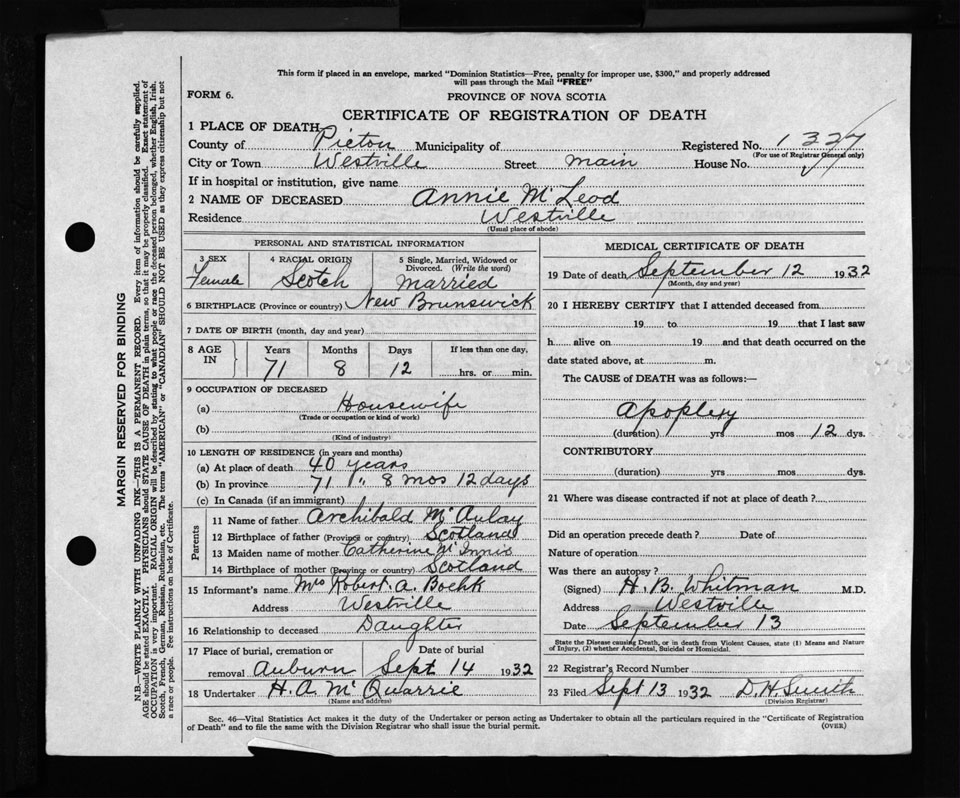 This form if placed in an envelope, marked "Dominion Statistics—Free, penalty for improper use, $300," and properly addressed
will pass through the Mail "FREE"
FORM 6.
PROVINCE OF NOVA SCOTIA
CERTIFICATE OF REGISTRATION OF DEATH
1 PLACE OF DEATH
County of Picton Municipality of Registered No. 1327
(For use of Registrar General only)
City or Town Westville Street main House No.
If in hospital or institution, give name
2 NAME OF DECEASED Annie McLeod
Residence Westville
(Usual place of abode)
PERSONAL AND STATISTICAL INFORMATION
3 SEX 4 RACIAL ORIGIN 5 Single, Married, Widowed or
Divorced. (Write the word)
Female Scotch married
6 BIRTHPLACE (Province or country) New Brunswick
7 DATE OF BIRTH (month, day and year)
8 AGE IN Years Months Days If less than one day,
71 8 12 hrs. or min.
9 OCCUPATION OF DECEASED
(a) Housewife
(Trade or occupation or kind of work)
(b)
(Kind of industry)
10 LENGTH OF RESIDENCE (in years and months)
(a) At place of death 40 years
(b) In province 71 " 8 mos 12 days
(c) In Canada (if an immigrant)
Parents
11 Name of father Archibald McAulay
12 Birthplace of father (Province or country) Scotland
13 Maiden name of mother Catherine McInnis
14 Birthplace of mother (Province or country) Scotland
15 Informant's name Mrs Robert. A. Boehk
Address Westville
16 Relationship to deceased Daughter
17 Place of burial, cremation or Date of burial
removal Auburn Sept 14 1932
18 Undertaker H. A. McQuarrie
(Name and address)
MEDICAL CERTIFICATE OF DEATH
19 Date of death September 12 1932
(Month, day and year)
20 I HEREBY CERTIFY that I attended deceased from
19 to 19 that I last saw
h alive on 19 and that death occurred on the
date stated above, at m.
The CAUSE of DEATH was as follows:—
Apoplexy
(duration) yrs mos 12 dys.
CONTRIBUTORY
(duration) yrs mos dys.
21 Where was disease contracted if not at place of death?
Did an operation precede death? Date of
Nature of operation
Was there an autopsy?
(Signed) H. B. Whitman M.D.
Address Westville
Date September 13
State the Disease causing Death, or in death from Violent Causes, state (1) Means and Nature
of Injury, (2) whether Accidental, Suicidal or Homicidal.
22 Registrar's Record Number
23 Filed Sept 13 1932 D. H. Smith
(Division Registrar)
Sec. 46—Vital Statistics Act makes it the duty of the Undertaker or person acting as Undertaker to obtain all the particulars required in the "Certificate of Registration
of Death" and to file the same with the Division Registrar who shall issue the burial permit. (OVER)
MARGIN RESERVED FOR BINDING
N.B.—WRITE PLAINLY WITH UNFADING INK—THIS IS A PERMANENT RECORD. Every item of information should be carefully supplied.
AGE should be stated EXACTLY. PHYSICIANS should STATE CAUSE OF DEATH in plain terms, so that it may be properly classified. Exact statement of
OCCUPATION is very important. RACIAL ORIGIN will be described by stating to what people or race the deceased person belonged, whether English, Irish,
Scotch, French, German, Russian, Ruthenian, etc. The terms "AMERICAN" or "CANADIAN" SHOULD NOT BE USED as they express citizenship but not
a race or people. Fee instructions on back of Certificate.